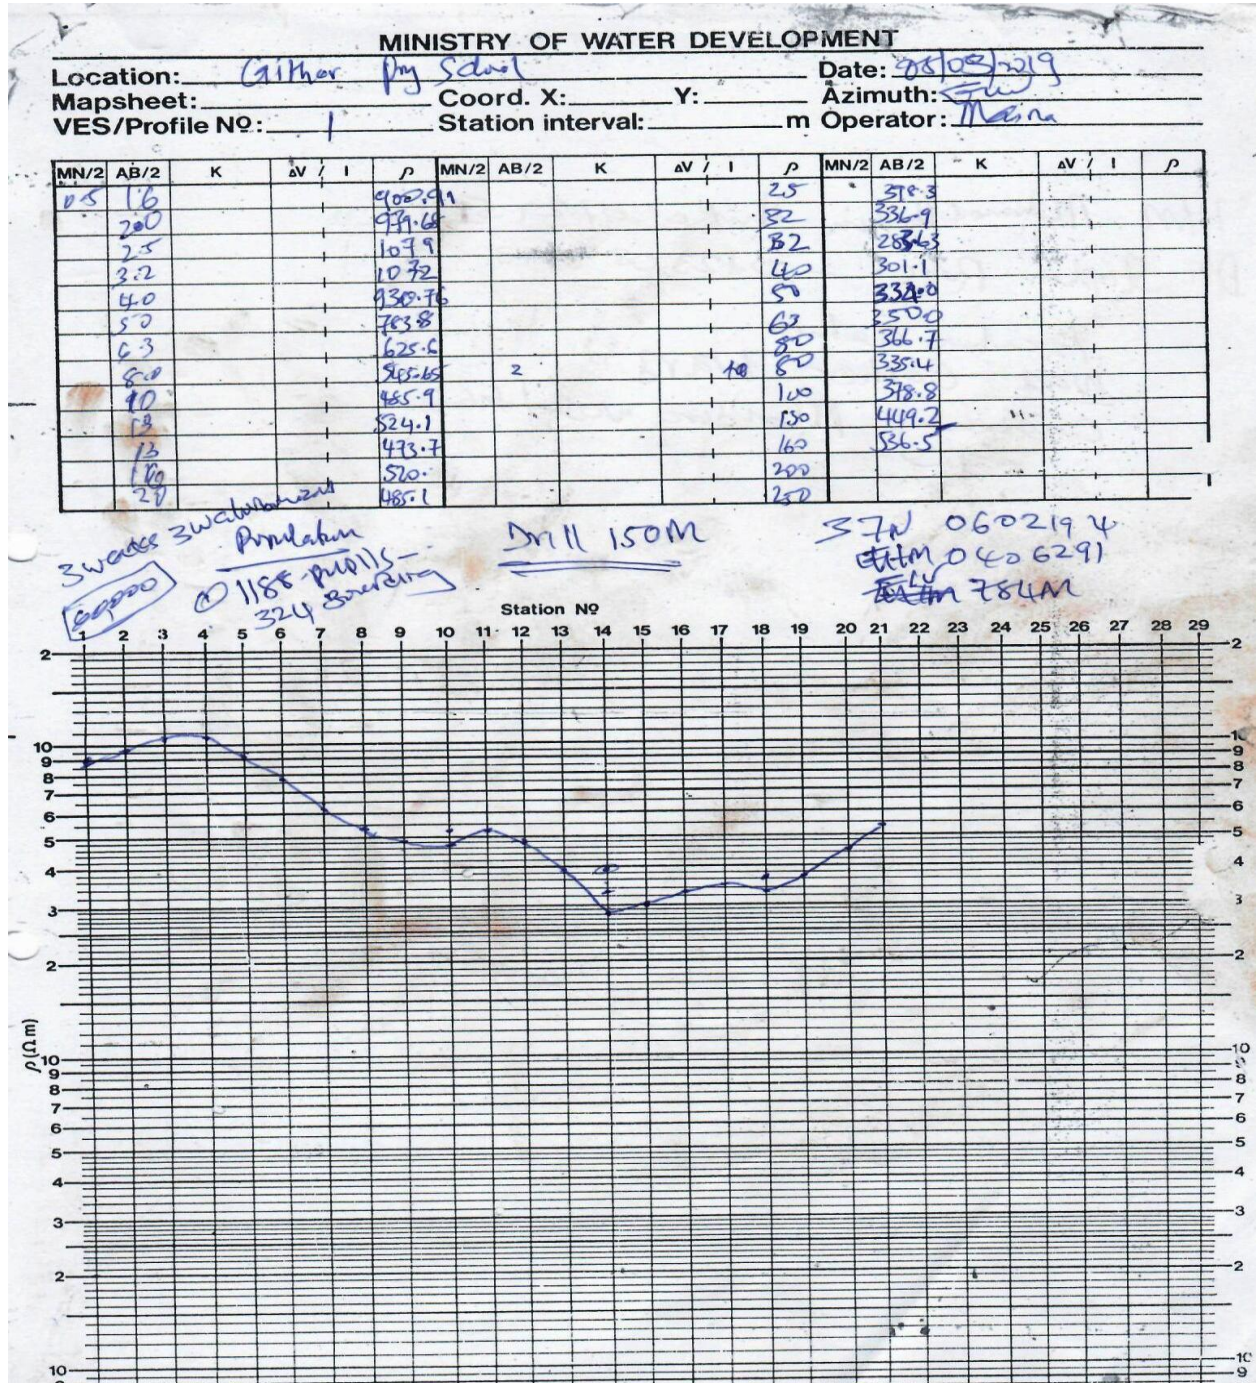 MINISTRY OF WATER DEVELOPMENT
Location: Githor Pry School Date: 05/03/2019
Mapsheet: Coord. X: Y: Azimuth:
VES/Profile Nº: 1 Station interval: m Operator: Maina
MN/2 AB/2 K ΔV / I ρ MN/2 AB/2 K ΔV / I ρ MN/2 AB/2 K ΔV / I ρ
0.5 1.6 900.91 25 378.3
2.0 979.68 32 336.9
2.5 1079 32
3.2 1072 40 301.1
4.0 930.76 50
5.0 783.8 63 350.0
6.3 625.6 80 366.7
8.0 545.65 2 10 80 335.4
10 485.9 100 378.8
13 524.1 130 449.2
13 473.7 160 536.5
16 520. 200
20 485.1 250
3 weeks
Population
1188 pupils
324 Boarding
Drill 150M
37N 0602194
0406291
784M
Station Nº
1 2 3 4 5 6 7 8 9 10 11 12 13 14 15 16 17 18 19 20 21 22 23 24 25 26 27 28 29
2 2
10 1
9 9
8 8
7 7
6 6
5 5
4 4
3 3
2 2
ρ(Ωm)
10 10
9 9
8 8
7 7
6 6
5 5
4 4
3 3
2 2
10 10
9